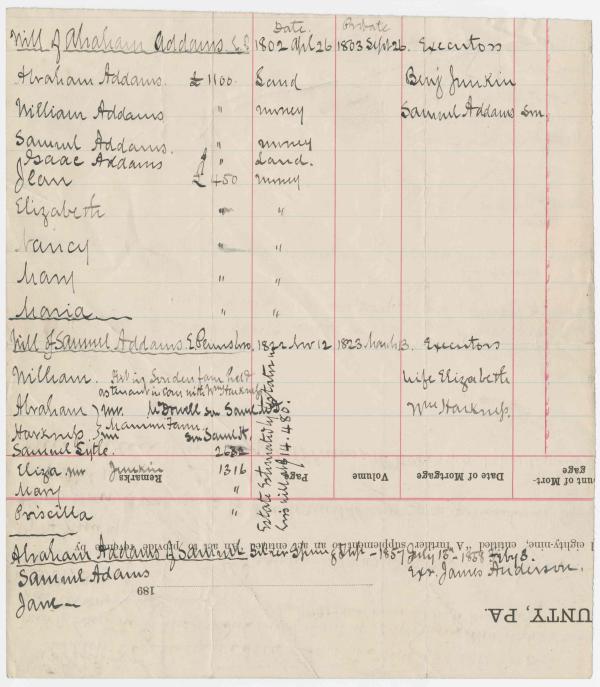 Date. Probate
Will of Abraham Addams E.P. 1802 Apl 26 1803 Sept 26. Executors
Abraham Addams. £ 1100. Land Benj Junkin
William Addams " money Samuel Addams snr.
Samuel Addams. " money
Isaac Addams " Land.
Jean £ 450 money
Elizabeth " "
Nancy " "
Mary " "
Maria " "
Will of Samuel Addams E. Pennsboro 1822 Nov 12 1823 March 3. Executors
William. in farm held Wife Elizabeth
as tenant in com with Wm Harkness
Abraham } mr. McDowell Wm Harkness.
Harkness } Mannin Farm.
Samuel Lytle. 2632
Eliza mr Junkin 1316
Mary "
Priscilla "
Estate Estimated by testator in his will at £14.480.
Remarks Page Volume Date of Mortgage unt of Mort-
gage
eighty-nine, entitled "A further supplement to an act entitled 'An act to provide by
Abraham Addams of Samuel Silver Spring Twp - 1857 July 13 - 1858 Feby 3.
Samuel Adams Exr. James Anderson.
189
Jane
UNTY, PA.